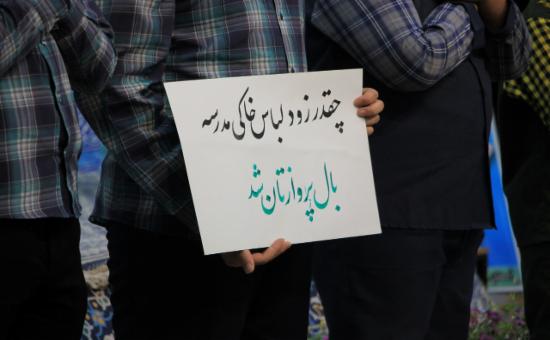 چقدر زود لباس خاکی مدرسه
بال پروازتان شد